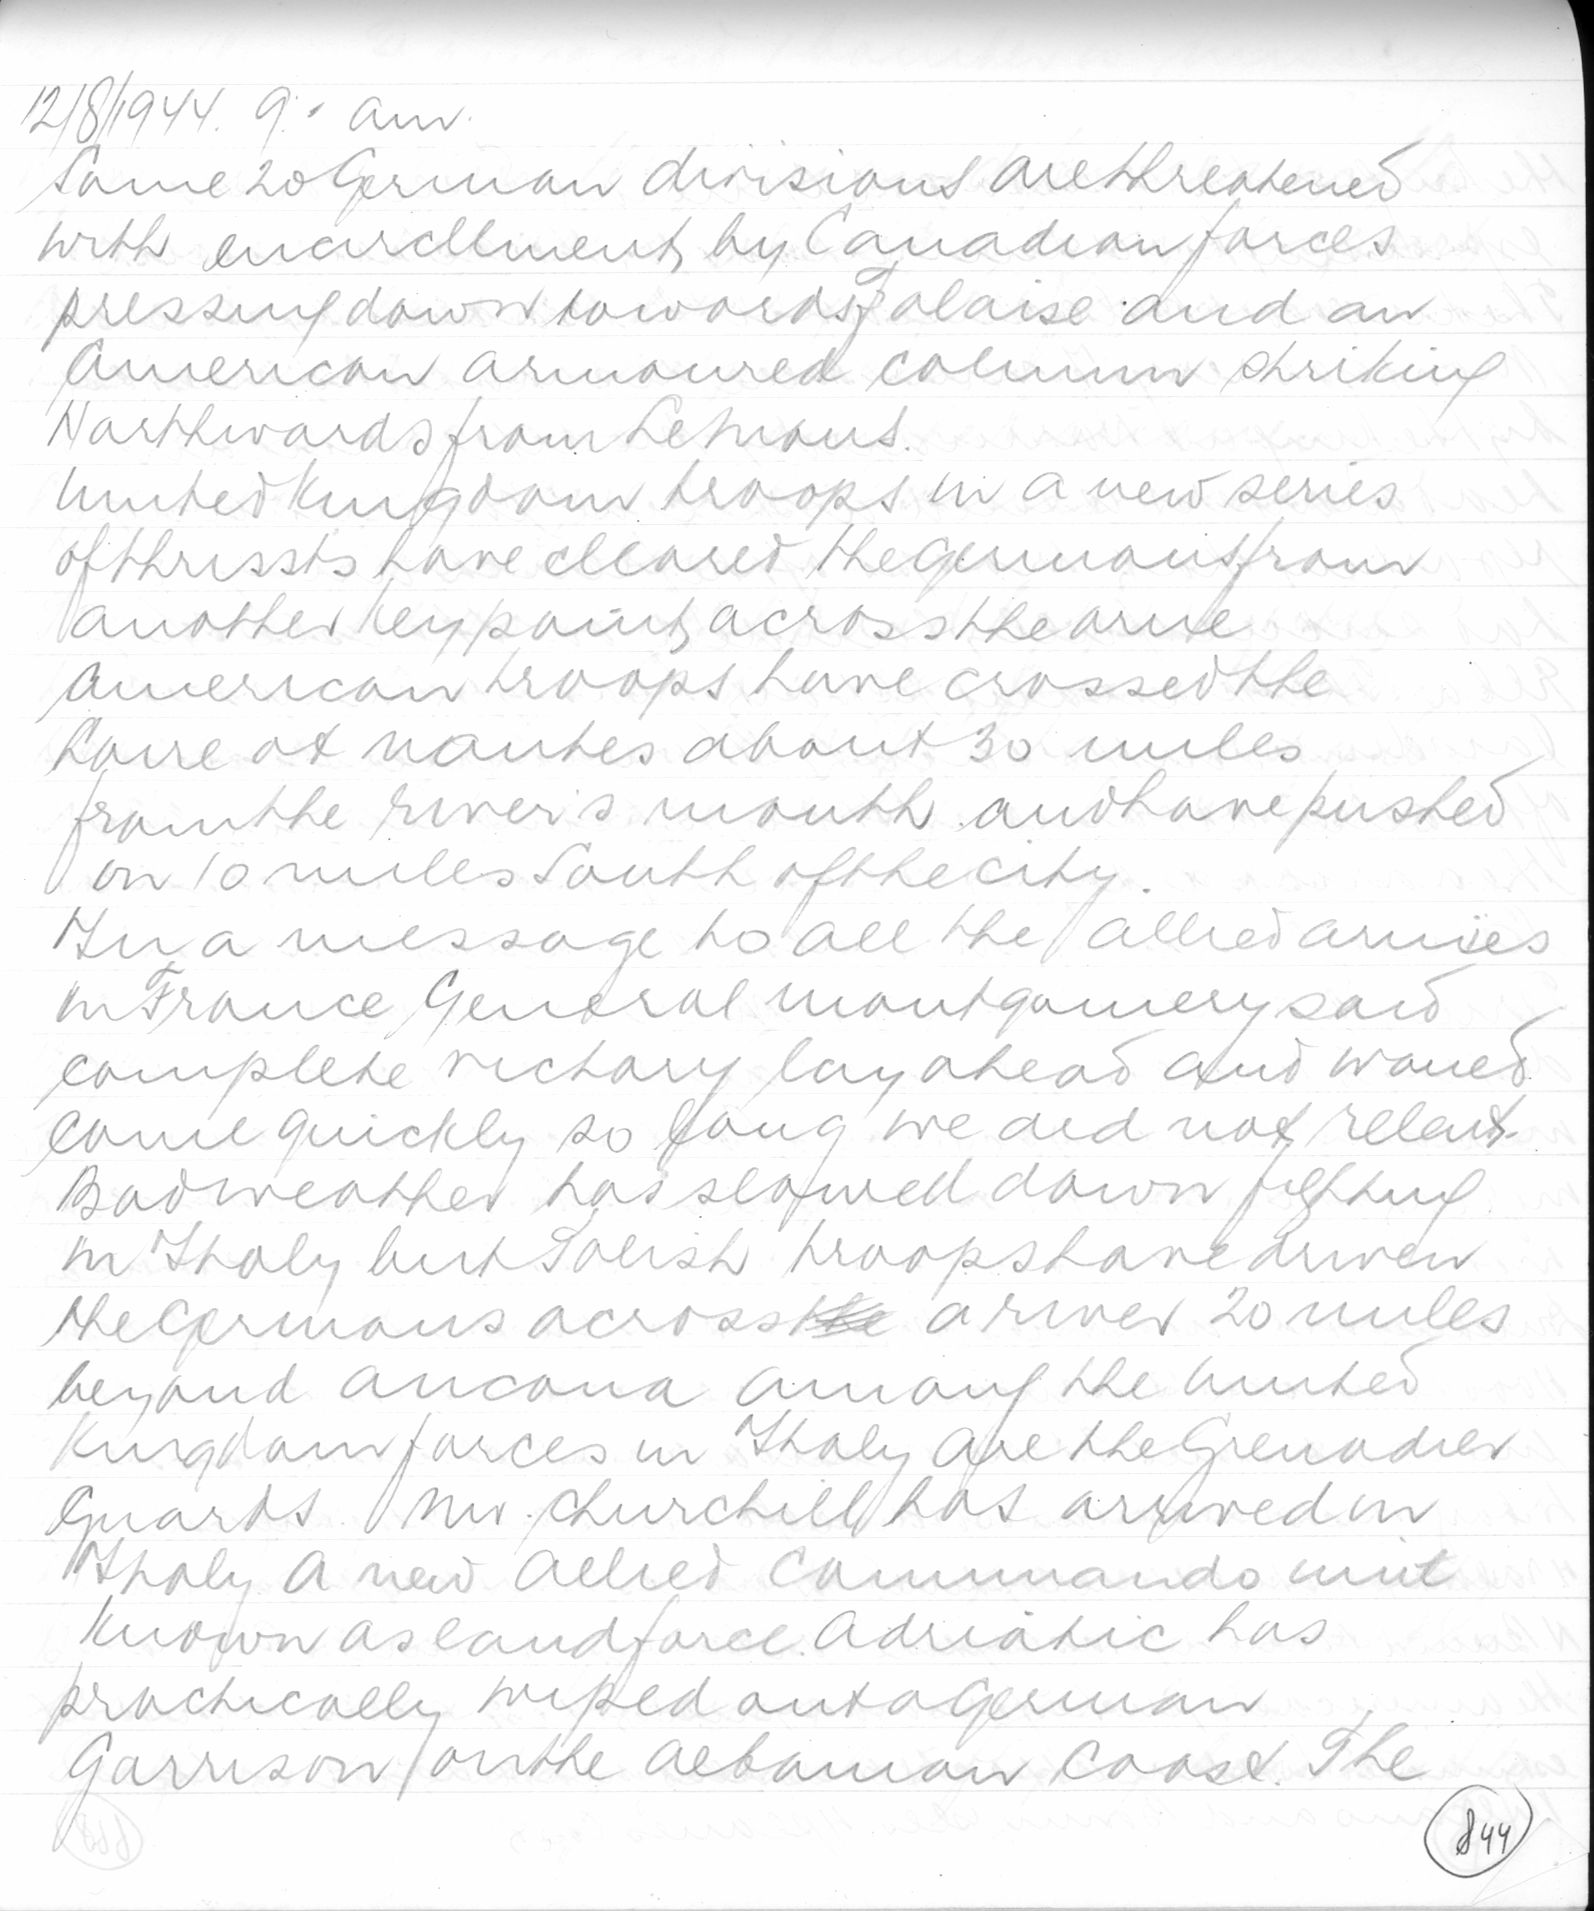 12/8/1944. 9. am.
Some 20 German divisions are threatened
with encirclment by Canadian forces
pressing down towards Falaise and an
American armoured column striking
Northwards from Le Mans.
United Kingdom troops in a new series
of thrusts have cleared the Germans from
another key point across the orne
American troops have crossed the
Loire at nantes about 30 miles
from the river's mouth and have pushed
on 10 miles South of the city.
In a message to all the allied armies
in France General montgomery said
complete victory lay ahead and woued
come quickly so long we did not relent.
Bad weather has slowed down fighting
in Italy but Polish troops have driven
the Germans across the a river 20 miles
beyond ancona among the United
Kingdom forces in Italy are the Grenadier
Guards. Mr. Churchill has arrived in
Italy. A new allied Commando unit
known as land force. Adriatic has
practically wiped out a German
Garrison on the Albanian Coast. The
844